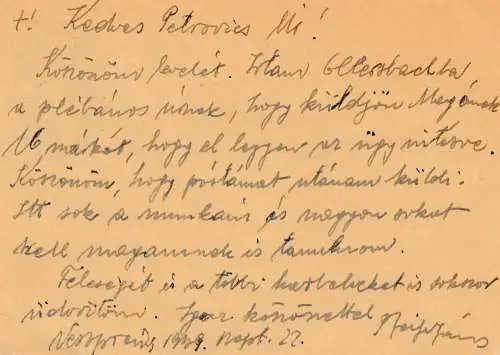 +! Kedves Petrovics Úr!
Köszönöm levelét. Irtam Otterbachba
a plébános úrnak, hogy küldjön Magának
16 márkát, hogy el legyen az ügy intézve.
Köszönöm, hogy póstámat utánam küldi.
Itt sok a munkám és nagyon sokat
kell magamnak is tanulnom.
Feleségét és a többi hazbelieket is sokszor
üdvözlöm. Igaz köszönettel
Veszprém, 1949. szept. 27.